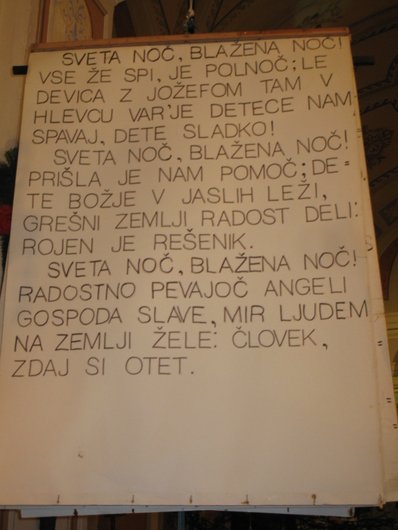 SVETA NOČ, BLAŽENA NOČ!
VSE ŽE SPI, JE POLNOČ; LE
DEVICA Z JOŽEFOM TAM V
HLEVCU VAR'JE DETECE NAM
SPAVAJ, DETE SLADKO!
SVETA NOČ, BLAŽENA NOČ!
PRIŠLA JE NAM POMOČ; DE=
TE BOŽJE V JASLIH LEŽI,
GREŠNI ZEMLJI RADOST DELI:
ROJEN JE REŠENIK.
SVETA NOČ, BLAŽENA NOČ!
RADOSTNO PEVAJOČ ANGELI
GOSPODA SLAVE, MIR LJUDEM
NA ZEMLJI ŽELE: ČLOVEK,
ZDAJ SI OTET.